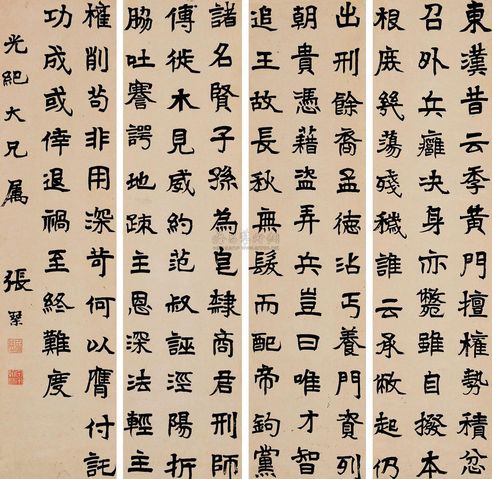 東漢昔云季黃門擅權勢積忿
召外兵癰决身亦斃雖自撥本
根庶幾蕩殘穢誰云承敝起仍
出刑餘裔孟德沾丐養門資列
朝貴憑藉盜弄兵豈曰唯才智
追王故長秋無髮而配帝鉤黨
諸名賢子孫為皂隸商君刑師
傅徙木見威約范叔誣涇陽折
脇吐謇諤地疎主恩深法輕主
權削苟非用深苛何以膺付託
功成或倖退禍至終難度
光紀大兄属 張琴